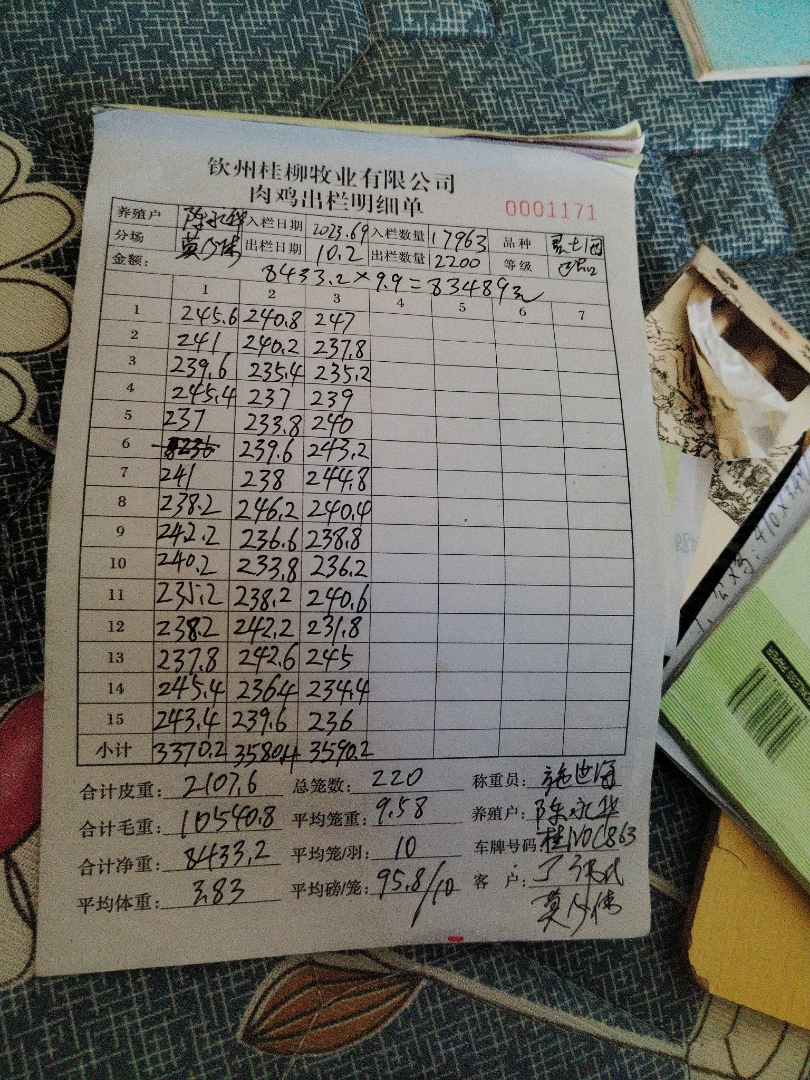 钦州桂柳牧业有限公司
肉鸡出栏明细单 0001171
养殖户 陈永华 入栏日期 2023.6.9 入栏数量 17963 品种
分场 莫少伟 出栏日期 10.2 出栏数量 2200 等级
金额: 8433.2×9.9=83489元
1 2 3 4 5 6 7
1 245.6 240.8 247
2 241 240.2 237.8
3 239.6 235.4 235.2
4 245.4 237 239
5 237 233.8 240
6 239.6 243.2
7 241 238 244.8
8 238.2 246.2 240.4
9 242.2 236.6 238.8
10 240.2 233.8 236.2
11 235.2 238.2 240.6
12 238.2 242.2 231.8
13 237.8 242.6 245
14 245.4 236.4 234.4
15 243.4 239.6 236
小计 3370.2 3580.4 3590.2
合计皮重: 2107.6 总笼数: 220 称重员:
合计毛重: 10540.8 平均笼重: 9.58 养殖户: 陈永华
合计净重: 8433.2 平均笼/羽: 10 车牌号码: 桂N0C863
平均体重: 3.83 平均磅/笼: 95.8/10 客 户:
莫少伟